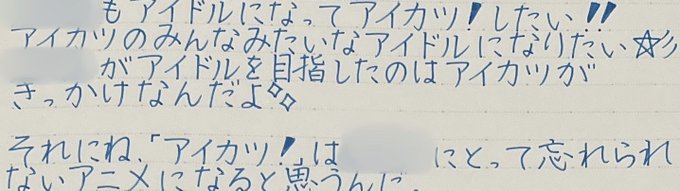 もアイドルになってアイカツ！したい！！
アイカツのみんなみたいなアイドルになりたい☆彡
がアイドルを目指したのはアイカツが
きっかけなんだよ✧✧
それにね、「アイカツ！」は にとって忘れられ
ないアニメになると思うんだ。